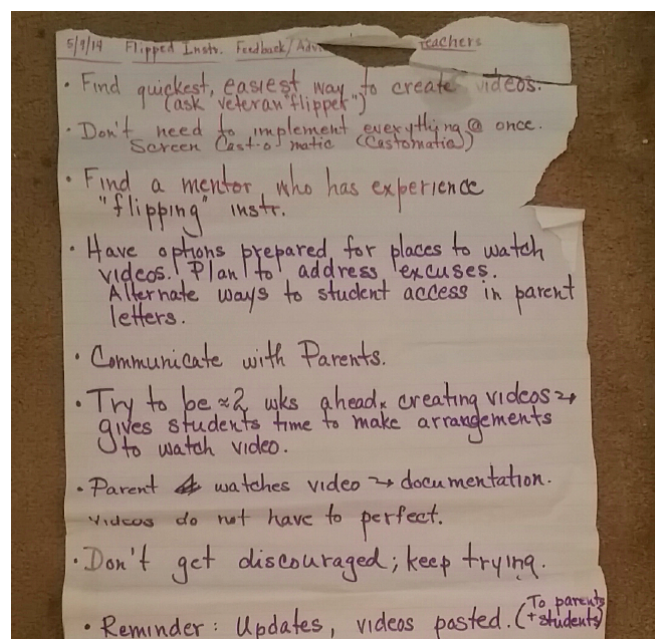 5/9/14 Flipped Instr. Feedback/ teachers
• Find quickest, easiest way to create videos.
(ask veteran "flipper")
• Don't need to implement everything @ once.
Screen Cast-o matic (Castomatia)
• Find a mentor, who has experience
"flipping" instr.
• Have options prepared for places to watch
videos. Plan to address excuses.
Alternate ways to student access in parent
letters.
• Communicate with Parents.
• Try to be ≈2 wks ahead, creating videos →
gives students time to make arrangements
to watch video.
• Parent watches video → documentation.
Videos do not have to perfect.
• Don't get discouraged; keep trying.
• Reminder: Updates, videos posted. (To parents
+ students)